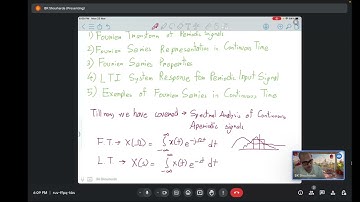 SK Shoubardy (Presenting)
1) Fourier Transform of Periodic Signals
2) Fourier Series Representation in Continuous Time
3) Fourier Series Properties
4) LTI System Response for Periodic Input Signal
5) Examples of Fourier Series in Continuous Time
Till now we have covered → Spectral Analysis of Continuous
Aperiodic signals
F.T → X(Ω) = ∫ x(t) e^-jΩt dt
L.T → X(s) = ∫ x(t) e^-st dt
4:09 PM